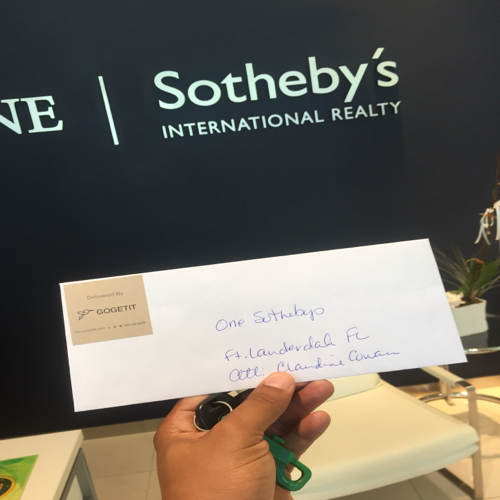 NE | Sotheby's
INTERNATIONAL REALTY
Delivered By
GOGETIT
One Sothebys
Ft. Lauderdale FL
Attl: Claudine Cowan